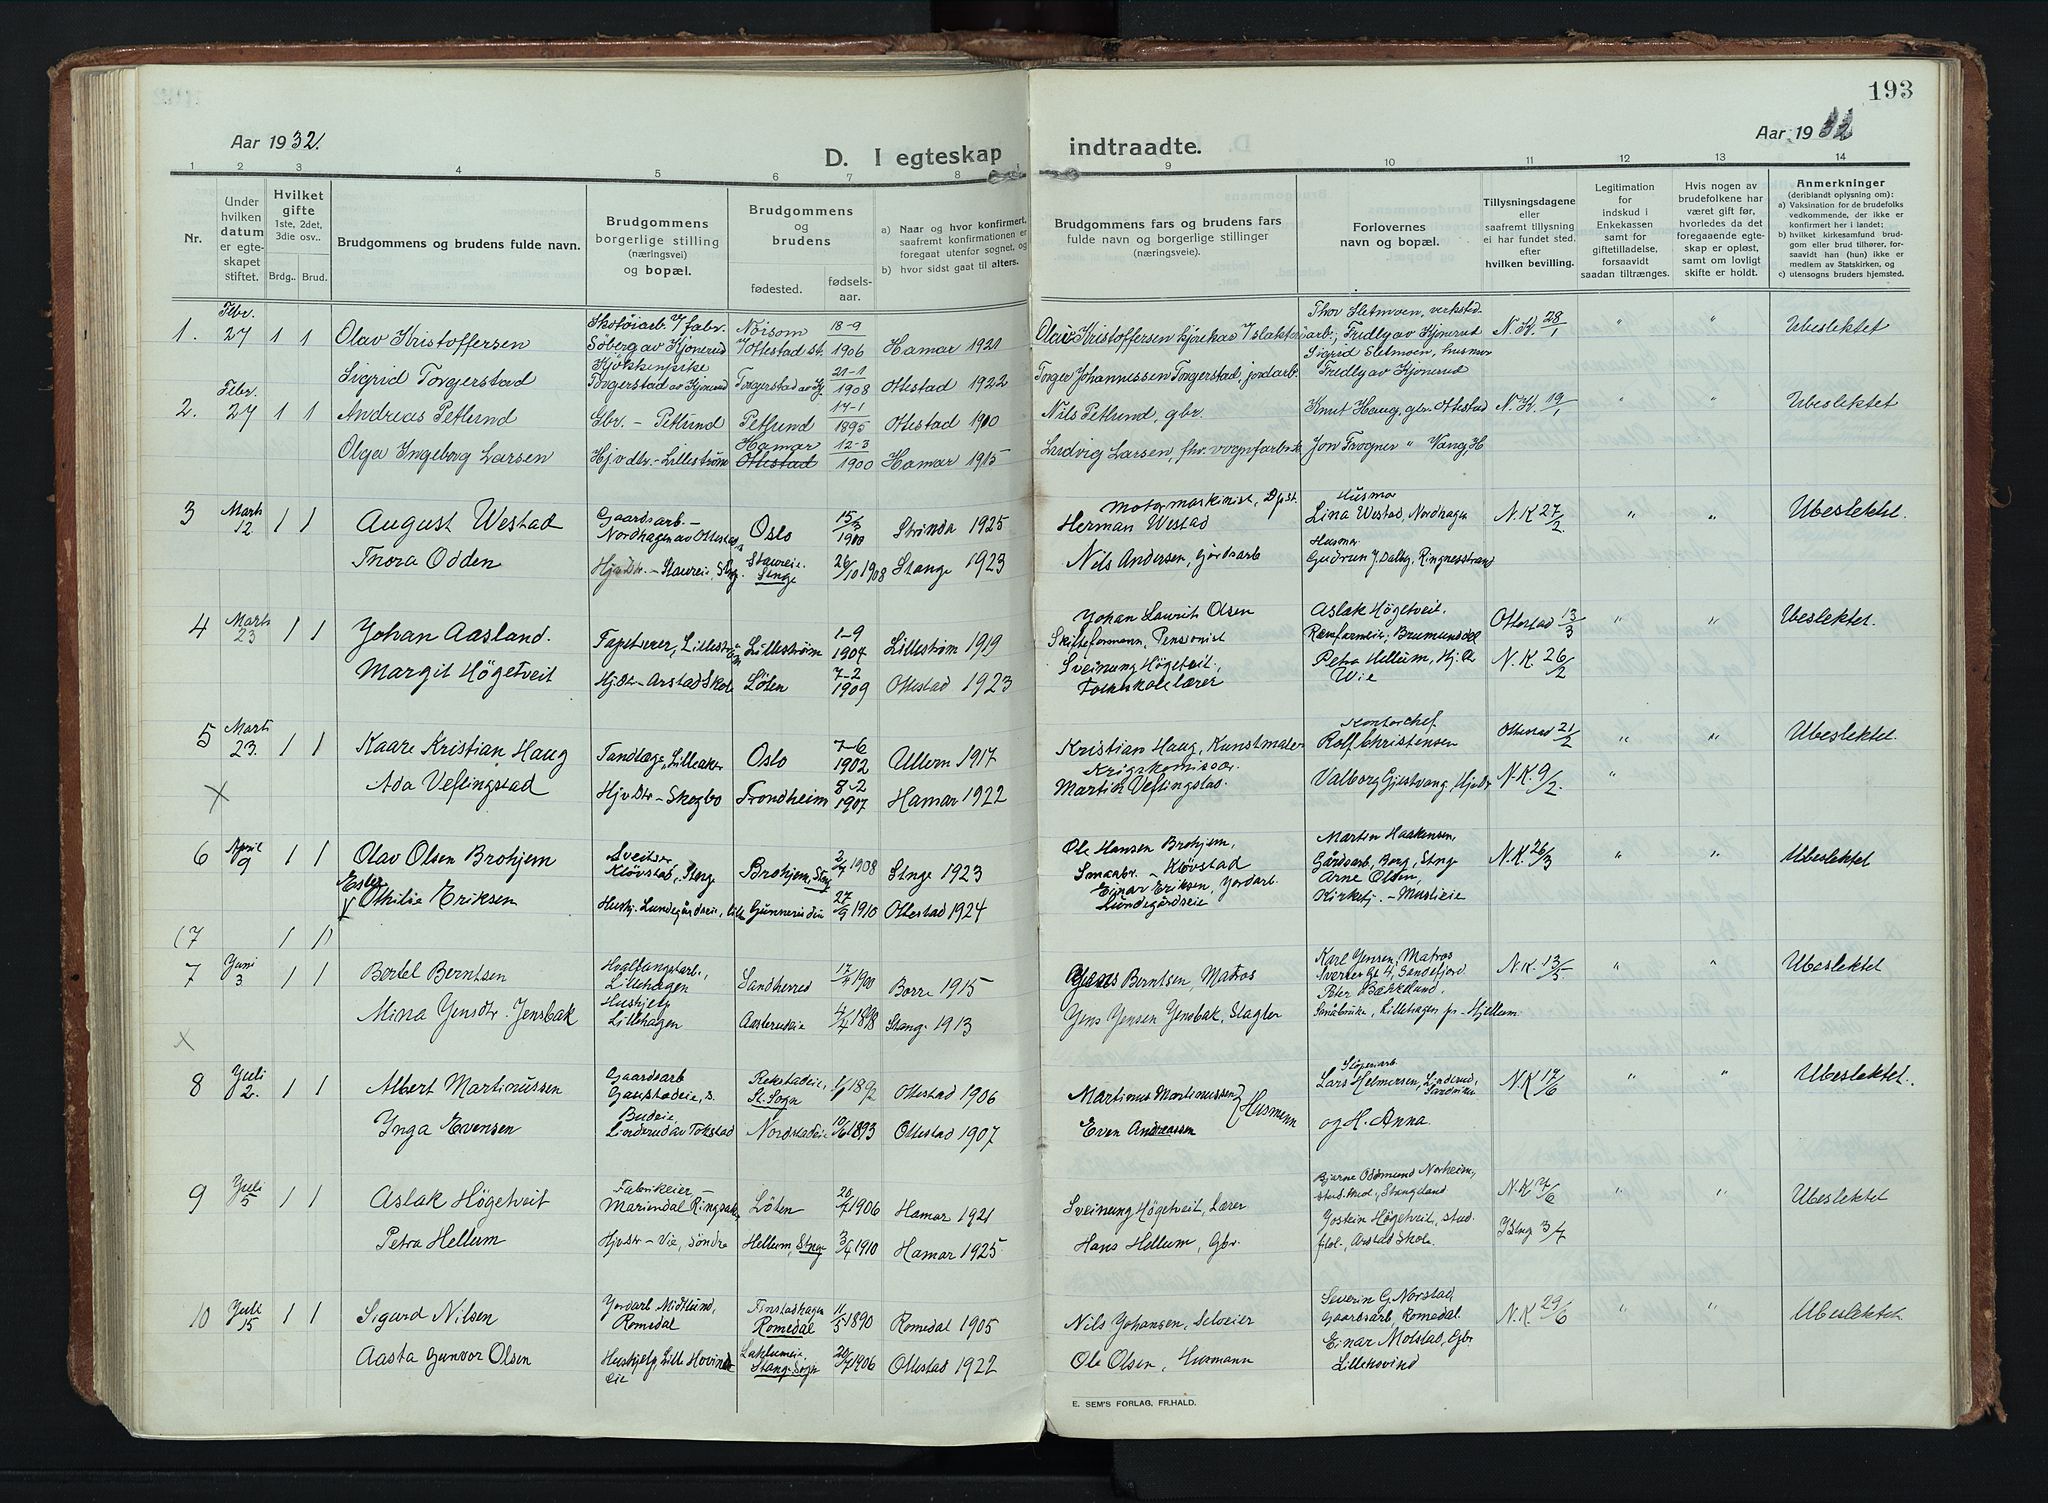 193
Aar 1932.
Aar 1932
D. I egteskap indtraadte.
1 2 3 4 5 6 7 8 9 10 11 12 13 14
Nr.
Under hvilken datum er egteskapet stiftet.
Hvilket gifte 1ste, 2det, 3die osv..
Brdg. Brud.
Brudgommens og brudens fulde navn.
Brudgommens borgerlige stilling (næringsvei) og bopæl.
Brudgommens og brudens
fødested. fødselsaar.
a) Naar og hvor konfirmert, saafremt konfirmationen er foregaat utenfor sognet, og
b) hvor sidst gaat til alters.
Brudgommens fars og brudens fars fulde navn og borgerlige stillinger (næringsveie).
Forlovernes navn og bopæl.
Tillysningsdagene eller saafremt tillysning ei har fundet sted. efter hvilken bevilling.
Legitimation for indskud i Enkekassen samt for giftetilladelse, forsaavidt saadan tiltrænges.
Hvis nogen av brudefolkene har været gift før, hvorledes da det foregaaende egteskap er opløst, samt om lovlig skifte er holdt.
Anmerkninger (deriblandt oplysning om):
a) Vaksination for de brudefolks vedkommende, der ikke er konfirmert her i landet;
b) hvilket kirkesamfund brudgom eller brud tilhører, forsaavidt han (hun) ikke er medlem av Statskirken, og
c) utensogns bruders hjemsted.
1. Febr. 27 1 1 Olav Kristoffersen Søberg av Kjonerud 18-9 1906 Hamar 1921 Olav Kristoffersen N.K. 28/1 " " Ubeslektet
Sigrid Torgerstad Kjøkkenpike Torgerstad av Kjonerud 21-1 1908 Ottestad 1922 Torger Johannessen Torgerstad, jordarb. Fredly av Kjonerud
2. Febr. 27 1 1 Andreas Petlund Gbr. - Petlund Petlund 17-1 1895 Ottestad 1910 Nils Petlund, gbr. Knut Haug, gbr. Ottestad N.K. 19/1 " " Ubeslektet
Olga Ingeborg Larsen Hjv.dtr. - Lillestrøm Hamar Ottestad 12-3 1900 Hamar 1915 Ludvig Larsen, fhv. vognfabrik. Jon Frogner " Vang, H.
3 Marts 12. 1 1 August Westad Gaardsarb - Nordhagen av Ottestad Oslo 15/3 1900 Strinda 1925 Motormaskinist, Herman Westad Husmor Lina Westad, Nordhagen N.K 27/2 " " Ubeslektet.
Thora Odden Hjv.dtr. - Staureie, Stge. Staureie Stnge 26/10 1908 Stange 1923 Nils Andersen, Gårdsarb Husmor Gudrun J. Dalby, Ringnesstrand
4 Marts 23 1 1 Johan Aasland. Tapetserer, Lillestrøm Lillestrøm 1-9 1904 Lillestrøm 1919 Johan Laurits Olsen Skifteformann, Pensionist Aslak Högetveit. Revefarmeier, Brumunddal Ottestad 13/3 " " Ubeslektet.
Margit Högetveit Hj.Dtr - Arstad Skole Löten 7-2 1909 Ottestad 1923 Sveinung Högetveit, Folkeskolelærer Petra Hellum, Hj.Dtr Wie N.K. 26/2
5 Marts 23. 1 1 Kaare Kristian Haug Tandlæge, Lilleaker Oslo 7-6 1902 Ullern 1917 Kristian Haug, Kunstmaler Kontorchef. Rolf Christensen Ottestad 21/2 " " Ubeslektet
X Ada Veflingstad Hjv.Dtr - Skogbo Trondheim 8-2 1907 Hamar 1922 Krigskomissær. Martin Veflingstad. Valborg Gjestvang, Hjv.dtr N.K. 9/2. "
6 April 9 1 1 Olav Olsen Brohjem Sveitser Klövstad, Stange Brohjem, Stnge 2/4 1908 Stnge 1923 Ole Hansen Brohjem, Smaabr. - Klövstad Martin Haakensen Gårdsarb, Berg, Stnge N.K. 26/3 " " Ubeslektet
Ester Othilie Eriksen Hushj. Lundegårdseie, Gunnerudeie 27/9 1910 Ottestad 1924 Einar Eriksen, Jordarb. Lundegårdseie Arne Olsen, Kirketj. - Muslieie
(7 1 1)
7 Juni 3 1 1 Bertel Berntsen Hvalfangstarb., Lillehagen Sandherred 17/4 1900 Borre 1915 Berntsen, Matros Karl Jensen, Matros Sverres Gt 4, Sandefjord N.K. 13/5 " " Ubeslektet
X Mina Jensdtr. Jensbak Hushjelp Lillehagen Aasterudeie 4/4 1898 Stange 1913 Jens Jensen Jensbak, Slagter Peter Bækkelund. Småbruker, Lillehagen pr. Hjellum
8 Juli 2. 1 1 Albert Martinussen Gaardsarb Rekstadeie, St. Sogn 1892 Ottestad 1906 Martinus Martinussen } Husmenn Lars Helmersen, N.K 17/6 " " Ubeslektet.
Inga Evensen Budeie Linderud av Tokstad Nordstadeie 10/6 1893 Ottestad 1907 Even Andreassen og H. Anna.
9 Juli 5 1 1 Aslak Högetveit Fabrikeier - Mariendal Ringsaker Löten 20/7 1906 Hamar 1921 Sveinung Högetveit, Lærer Bjarne Oddmund Norheim, Stangeland N.K 7/6 " " Ubeslektet
Petra Hellum Hjv.dtr - Vie, Söndre Hellum, Stnge 3/4 1910 Hamar 1925. Hans Hellum, Gbr. Jostein Högetveit, stud. filol., Arstad Skole.
10 Juli 15 1 1 Sigurd Nilsen Jordarb Midtlund, Romedal Finstadhagen Romedal 11/5 1890 Romedal 1905 Nils Johansen, Selveier Severin G. Norstad, Gaardsarb, Romedal. N.K 29/6 " " Ubeslektet
Aasta Gunvor Olsen Hushjelp, Lille Hovindeie Stange Sogn 20/7 1906 Ottestad 1922 Ole Olsen, Husmann Einar Molstad, Gbr Lillehovind
E. SEM'S FORLAG, FR.HALD.